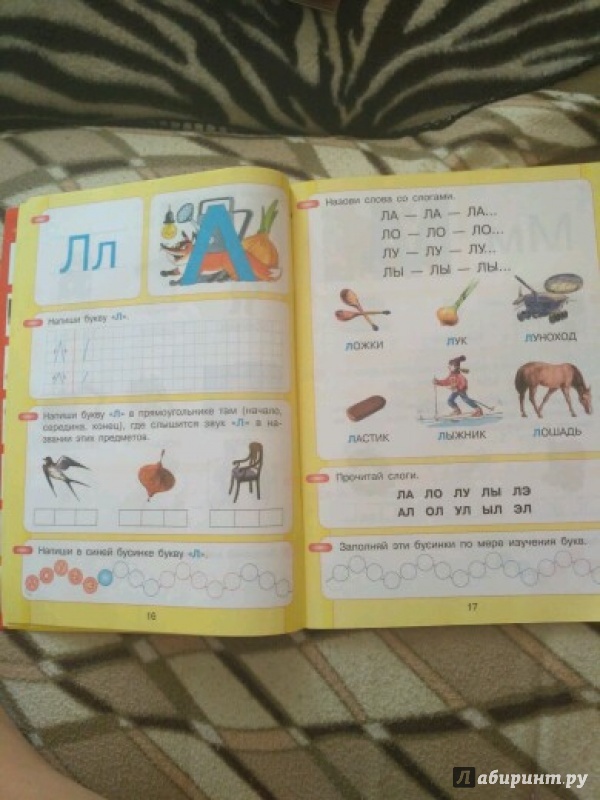 Лл
Л
Напиши букву «Л».
Напиши букву «Л» в прямоугольнике там (начало,
середина, конец), где слышится звук «Л» в на-
звании этих предметов.
Напиши в синей бусинке букву «Л».
16
Назови слова со слогами.
ЛА — ЛА — ЛА...
ЛО — ЛО — ЛО...
ЛУ — ЛУ — ЛУ...
ЛЫ — ЛЫ — ЛЫ...
ЛОЖКИ
ЛУК
ЛУНОХОД
ЛАСТИК
ЛЫЖНИК
ЛОШАДЬ
Прочитай слоги.
ЛА ЛО ЛУ ЛЫ ЛЭ
АЛ ОЛ УЛ ЫЛ ЭЛ
Заполняй эти бусинки по мере изучения букв.
17
Лабиринт.ру